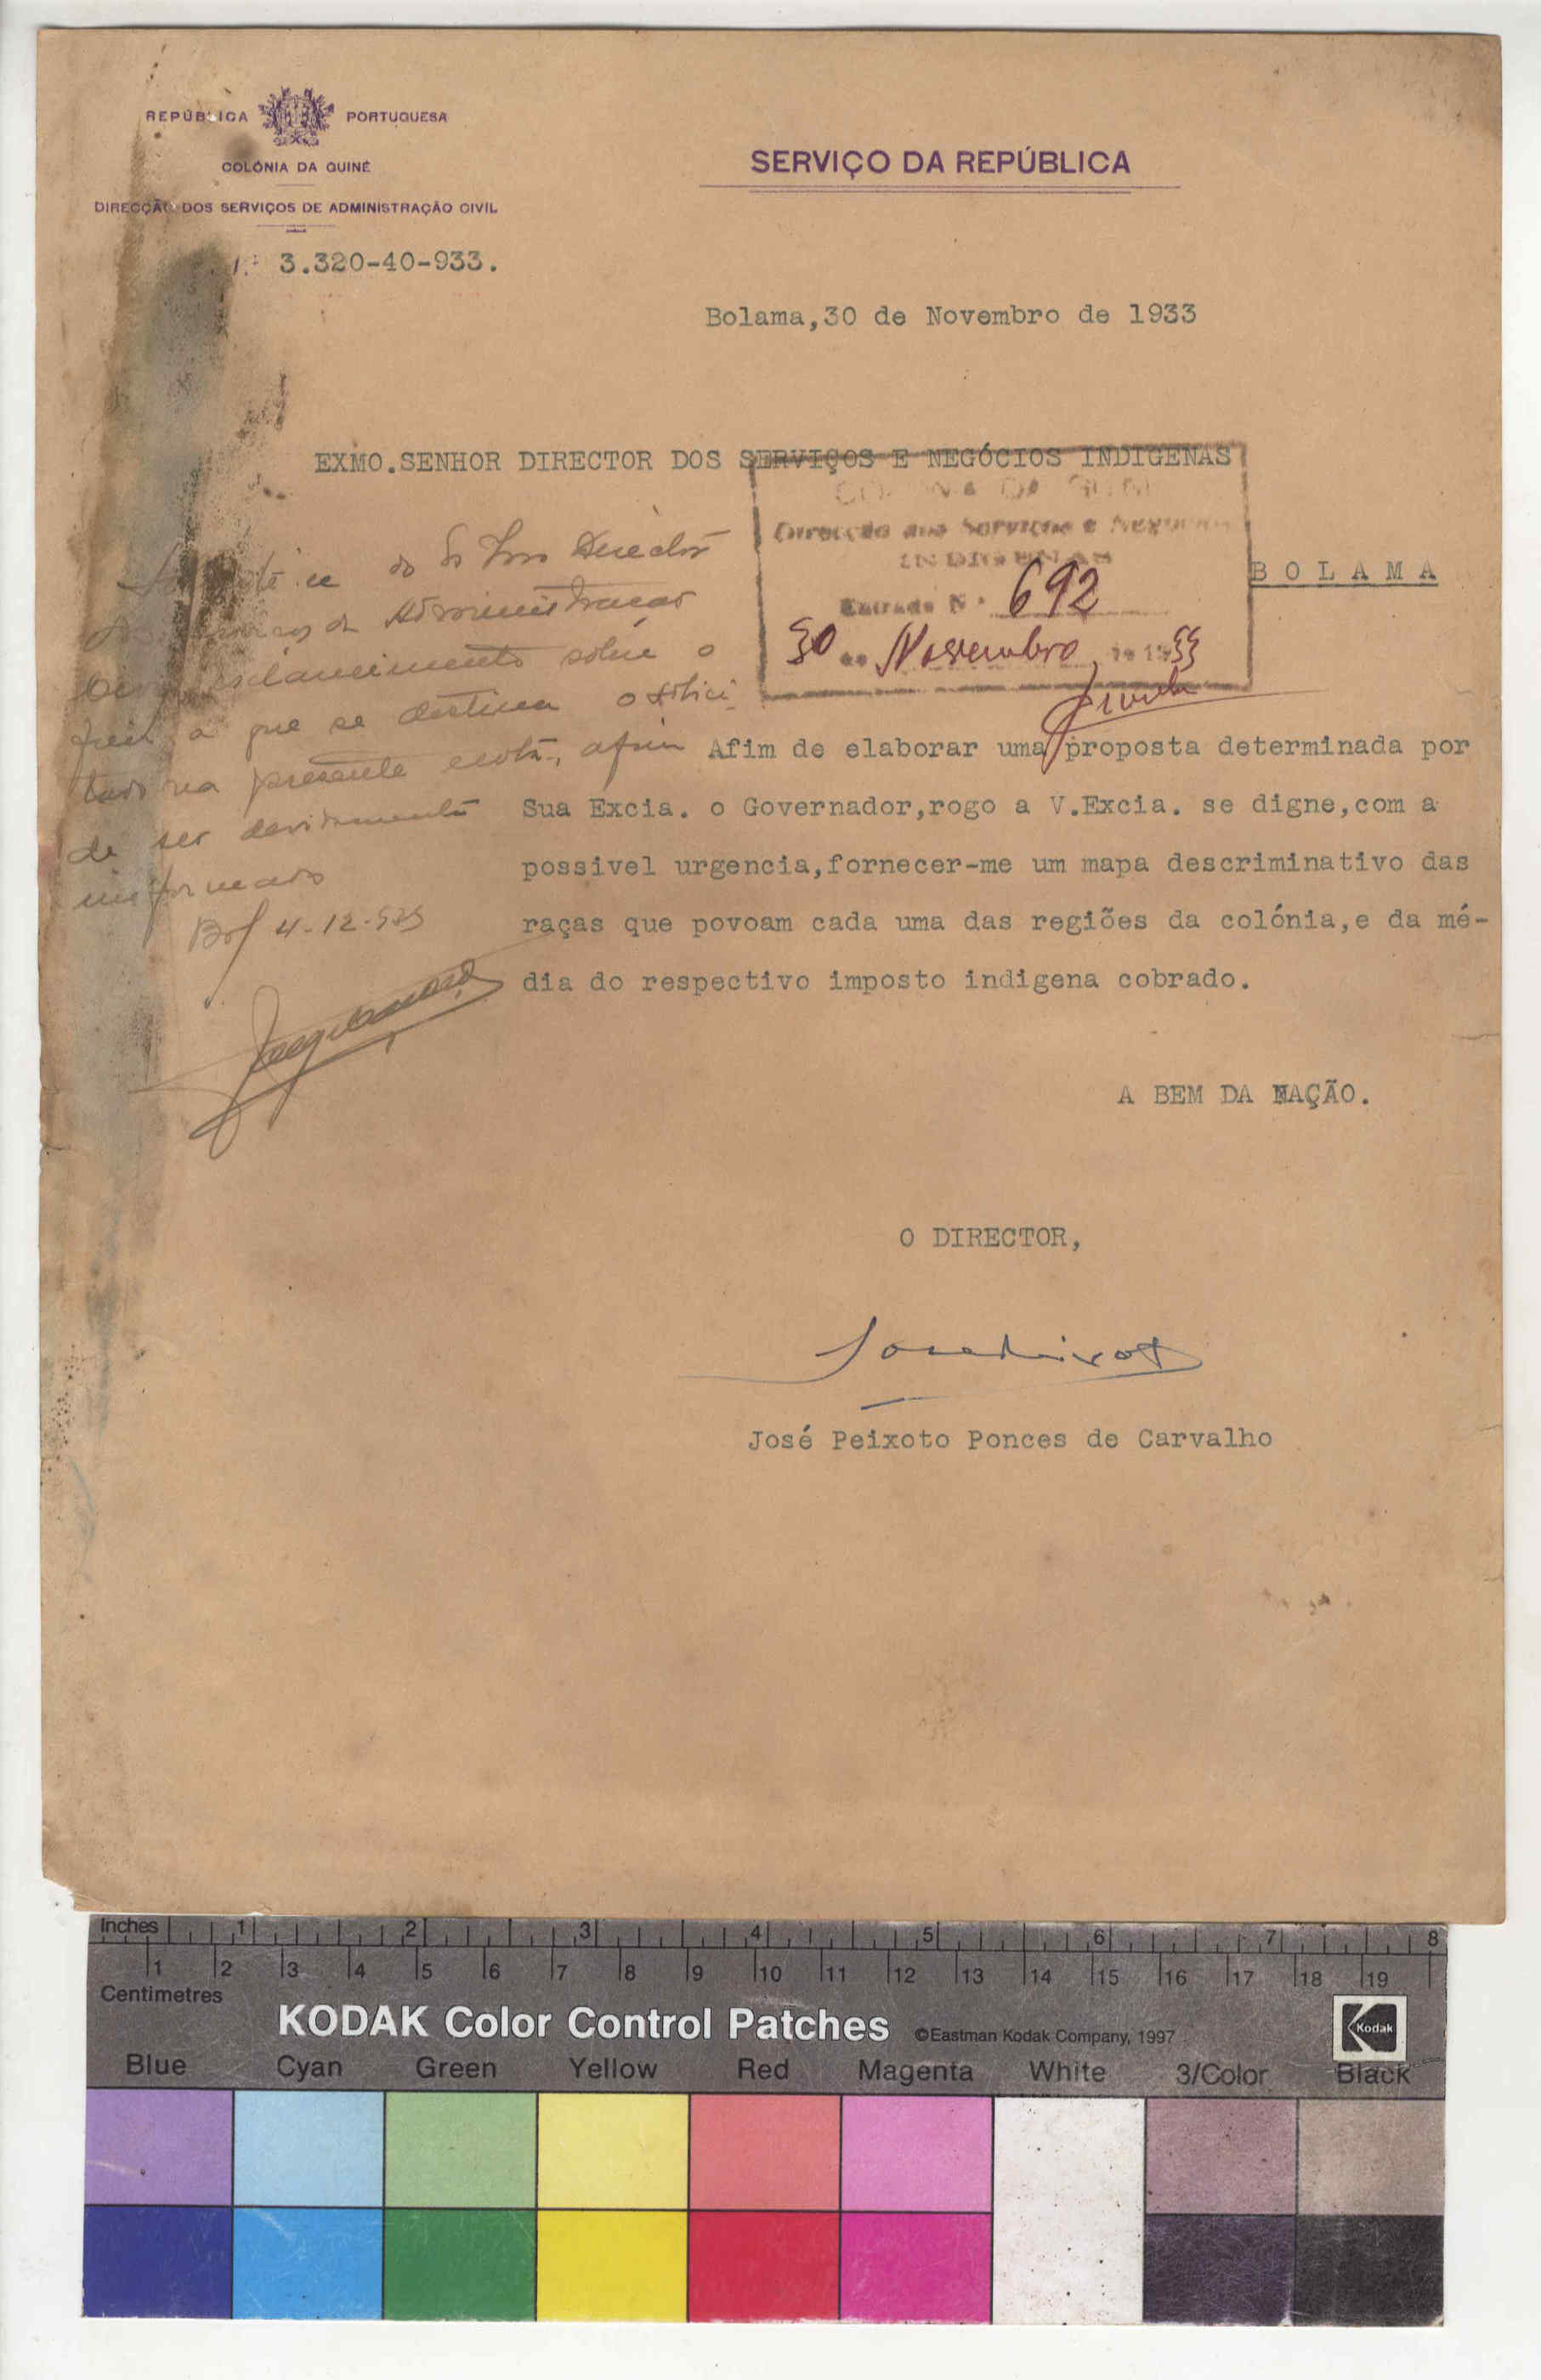 REPÚBLICA PORTUGUESA
COLÓNIA DA GUINÉ
DIRECÇÃO DOS SERVIÇOS DE ADMINISTRAÇÃO CIVIL
3.320-40-933.
SERVIÇO DA REPÚBLICA
Bolama,30 de Novembro de 1933
EXMO.SENHOR DIRECTOR DOS SERVIÇOS E NEGÓCIOS INDIGENAS
Direcção dos Serviços e Negocios
INDIGENAS
Entrada N.º 692
30 de Novembro de 1933
BOLAMA
ao Director
Administracao
esclarecimento sobre o
fim a que se destina o solici
tado na presente nota, afim
de ser devidamente
informado
Bol 4-12-933
Afim de elaborar uma proposta determinada por
Sua Excia. o Governador,rogo a V.Excia. se digne,com a
possivel urgencia,fornecer-me um mapa descriminativo das
raças que povoam cada uma das regiões da colónia,e da mé-
dia do respectivo imposto indigena cobrado.
A BEM DA NAÇÃO.
O DIRECTOR,
José Peixoto Ponces de Carvalho
Inches 1 2 3 4 5 6 7 8
1 2 3 4 5 6 7 8 9 10 11 12 13 14 15 16 17 18 19
Centimetres
KODAK Color Control Patches ©Eastman Kodak Company, 1997 Kodak
Blue Cyan Green Yellow Red Magenta White 3/Color Black